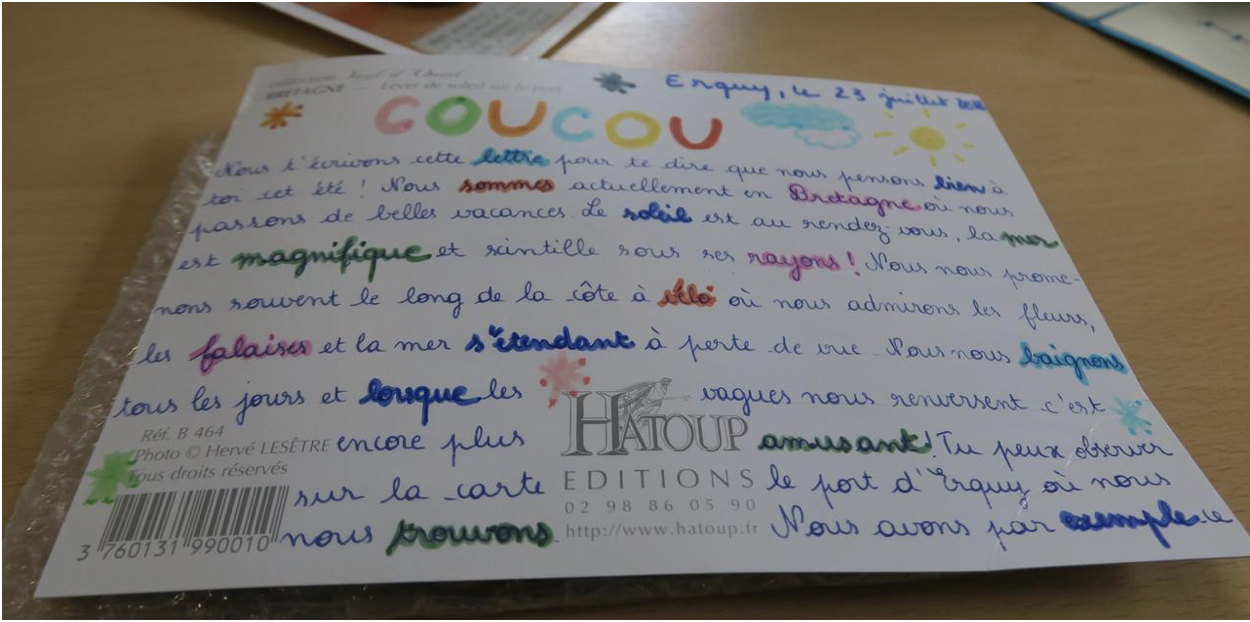 BRETAGNE — Lever de soleil sur le port
Erquy, le 23 juillet
COUCOU
Nous t'écrivons cette lettre pour te dire que nous pensons bien à
toi cet été ! Nous sommes actuellement en Bretagne où nous
passons de belles vacances. Le soleil est au rendez-vous, la mer
est magnifique et scintille sous ses rayons ! Nous nous prome-
nons souvent le long de la côte à vélo où nous admirons les fleurs,
les falaises et la mer s'étendant à perte de vue. Nous nous baignons
tous les jours et lorsque les vagues nous renversent c'est
encore plus amusant ! Tu peux observer
sur la carte le port d'Erquy où nous
nous trouvons. Nous avons par exemple
Réf. B 464
Photo © Hervé LESÊTRE
Tous droits réservés
3 760131 990010
HATOUP
EDITIONS
02 98 86 05 90
http://www.hatoup.fr